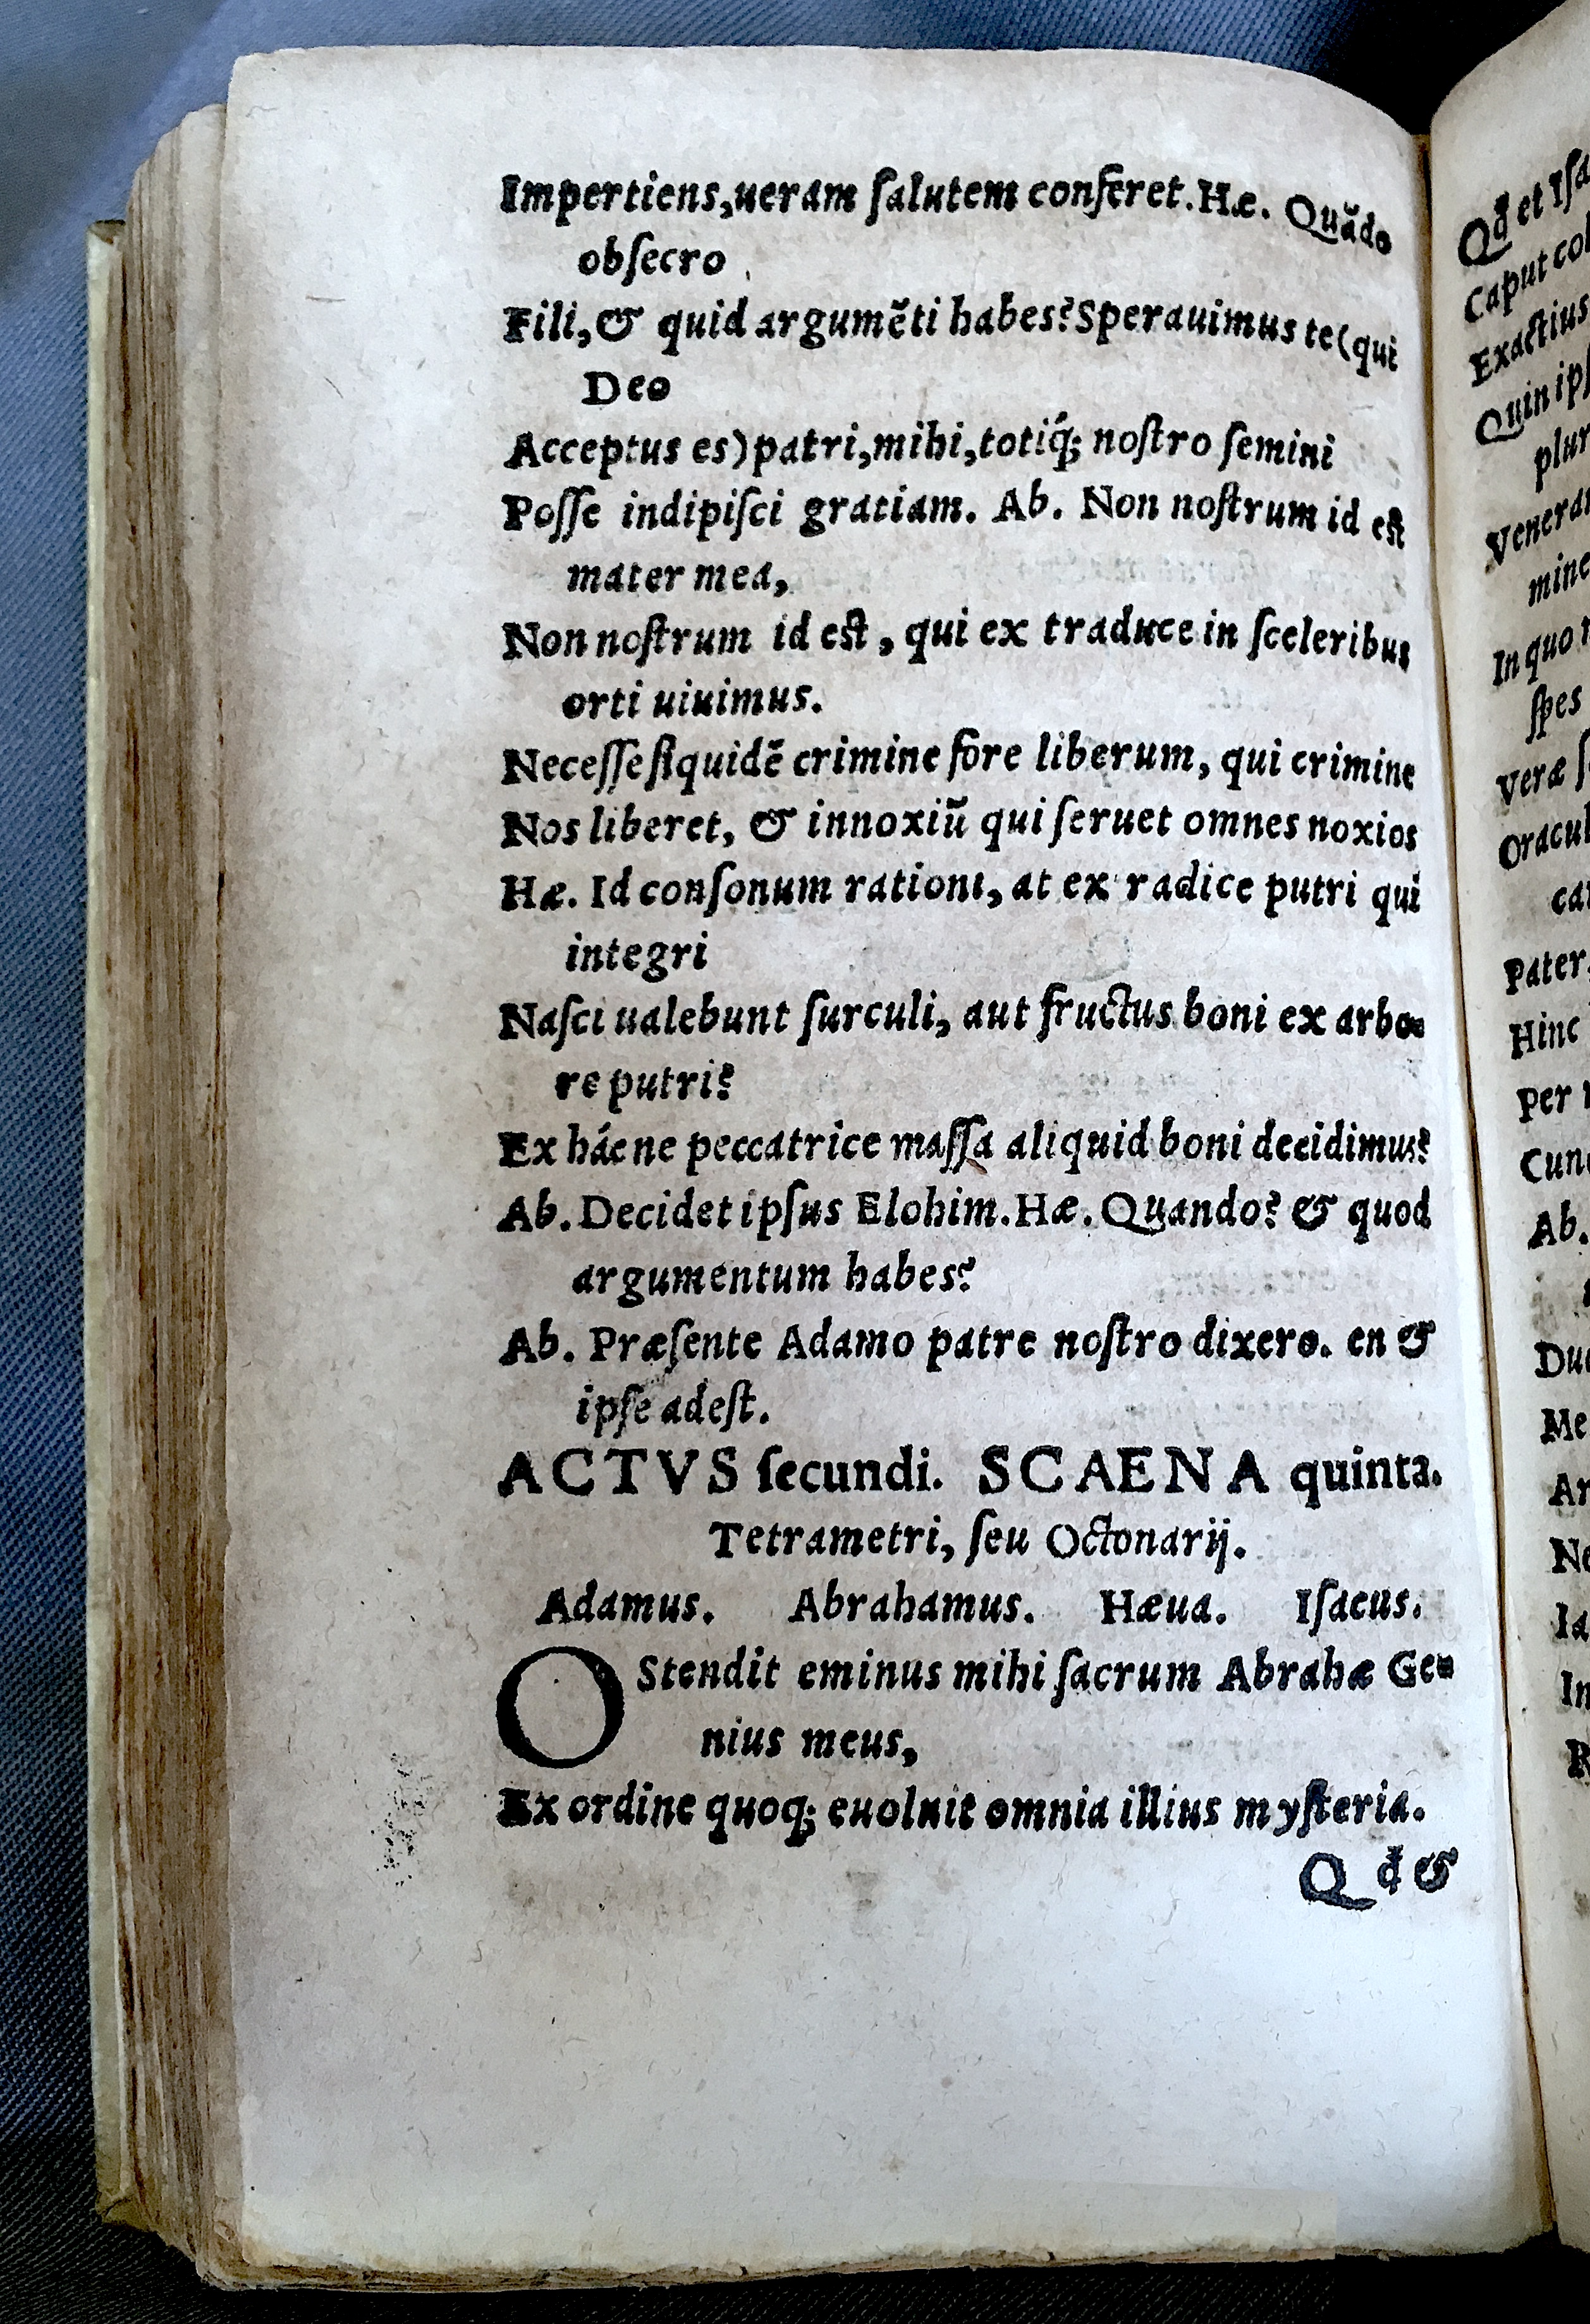 Impertiens,ueram ſalutem conferet.Hæ. Quãdo
obſecro
Fili,& quid argumẽti habes?Sperauimus te(qui
Deo
Acceptus es)patri,mihi,totiq́; noſtro ſemini
Poſſe indipiſci gratiam. Ab. Non noſtrum id eſt
mater mea,
Non noſtrum id eſt, qui ex traduce in ſceleribus
orti uiuimus.
Neceſſe ſiquidẽ crimine fore liberum, qui crimine
Nos liberet, & innoxiũ qui ſeruet omnes noxios
Hæ. Id conſonum rationi, at ex radice putri qui
integri
Naſci ualebunt ſurculi, aut fructus boni ex arbo-
re putri?
Ex hácne peccatrice maſſa aliquid boni decidimus?
Ab. Decidet ipſus Elohim.Hæ. Quando? & quod
argumentum habes?
Ab. Præſente Adamo patre noſtro dixero. en &
ipſe adeſt.
ACTVS ſecundi. SCAENA quinta.
Tetrametri, ſeu Octonarij.
Adamus. Abrahamus. Hæua. Iſacus.
OStendit eminus mihi ſacrum Abrahæ Ge-
nius meus,
Ex ordine quoq; euoluit omnia illius myſteria.
Qđ &
Qđ et Iſa
Caput co
Exactius
Quin ip
plur
Venera
mine
In quo
ſpes
Veræ
Oracul
ca
Pater,
Hinc
Per
Cun
Ab.
Du
Me
Ar
Ne
Ia
In
R